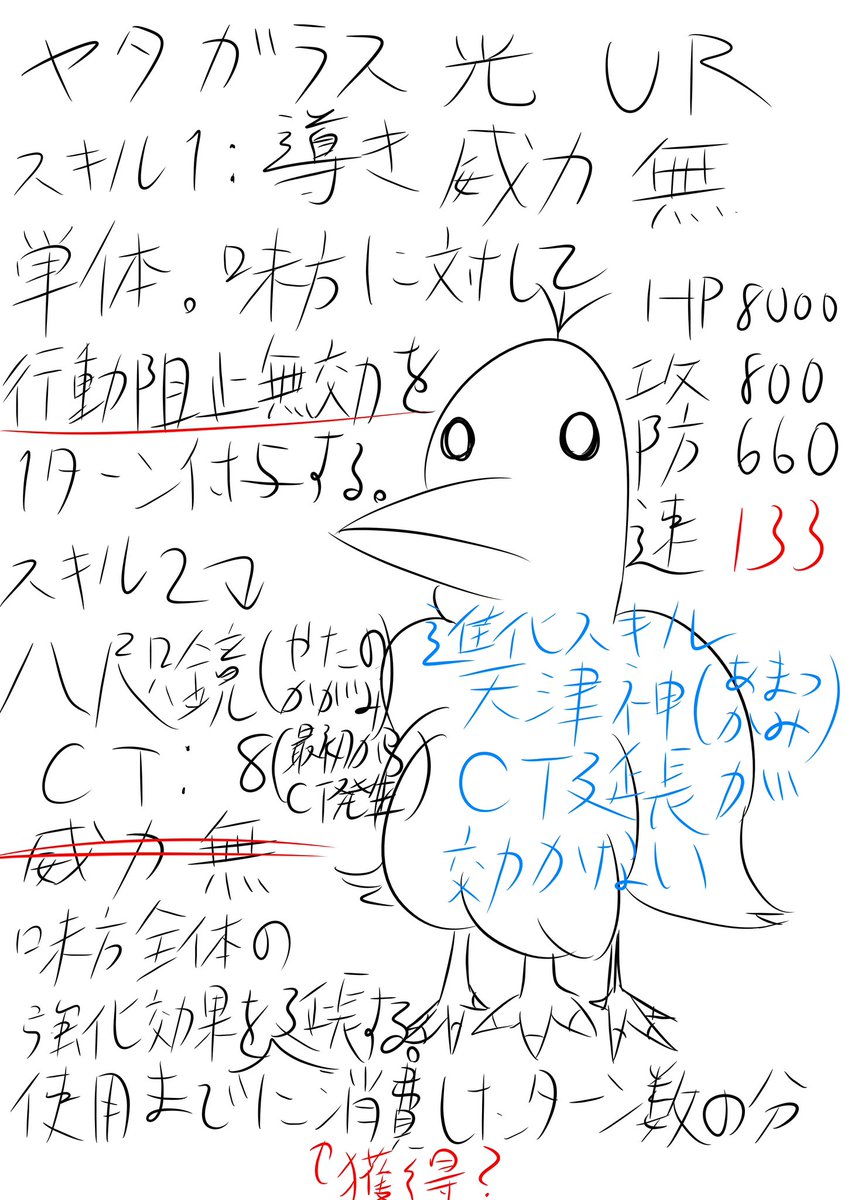 ヤタガラス 光 UR
スキル1:導き 威力 無
単体。味方に対して
行動阻止無効を
1ターン付与する。
HP 8000
攻 800
防 660
速 133
スキル2↴
八尺鏡(やたのかがみ)
CT:8(最初からCT発生)
威力 無
味方全体の
強化効果を延長する。
使用までに消費したターン数の分
↑獲得?
進化スキル
天津神(あまつかみ)
CT延長が
効かない